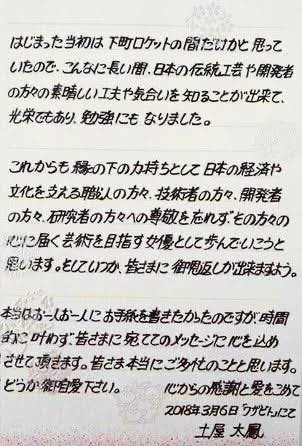 はじまった当初は下町ロケットの間だけかと思って
いたので、こんなに長い間、日本の伝統工芸や開発者
の方々の素晴しい工夫や気合いを知ることが出来て、
光栄でもあり、勉強にもなりました。
これからも縁の下の力持ちとして日本の経済や
文化を支える職人の方々、技術者の方々、開発者
の方々、研究者の方々への尊敬を忘れず、その方々の
心に届く芸術を目指す女優として歩んでいこうと
思います。そしていつか、皆さまに御恩返しが出来ますよう。
本当はお一人お一人にお手紙を書きたかったのですが、時間
的に叶わず、皆さまに宛ててのメッセージに心を込め
させて頂きます。皆さま本当にご多忙のことと思います。
どうか御自愛下さい。 心からの感謝と愛をこめて
2018年3月6日「ワザビト」にて
土屋 太鳳